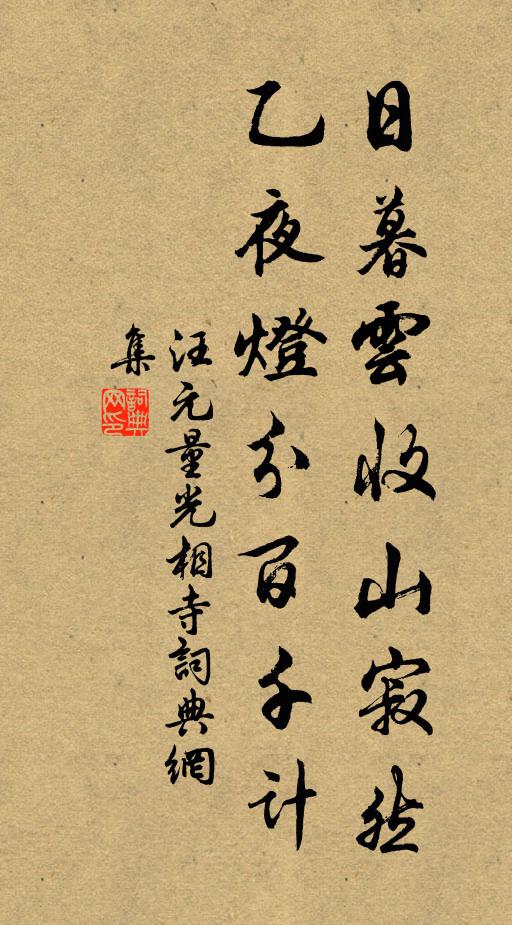 日暮雲收山寂然
乙夜燈分百千計
汪元量光相寺詞典網
集
詞典
網印